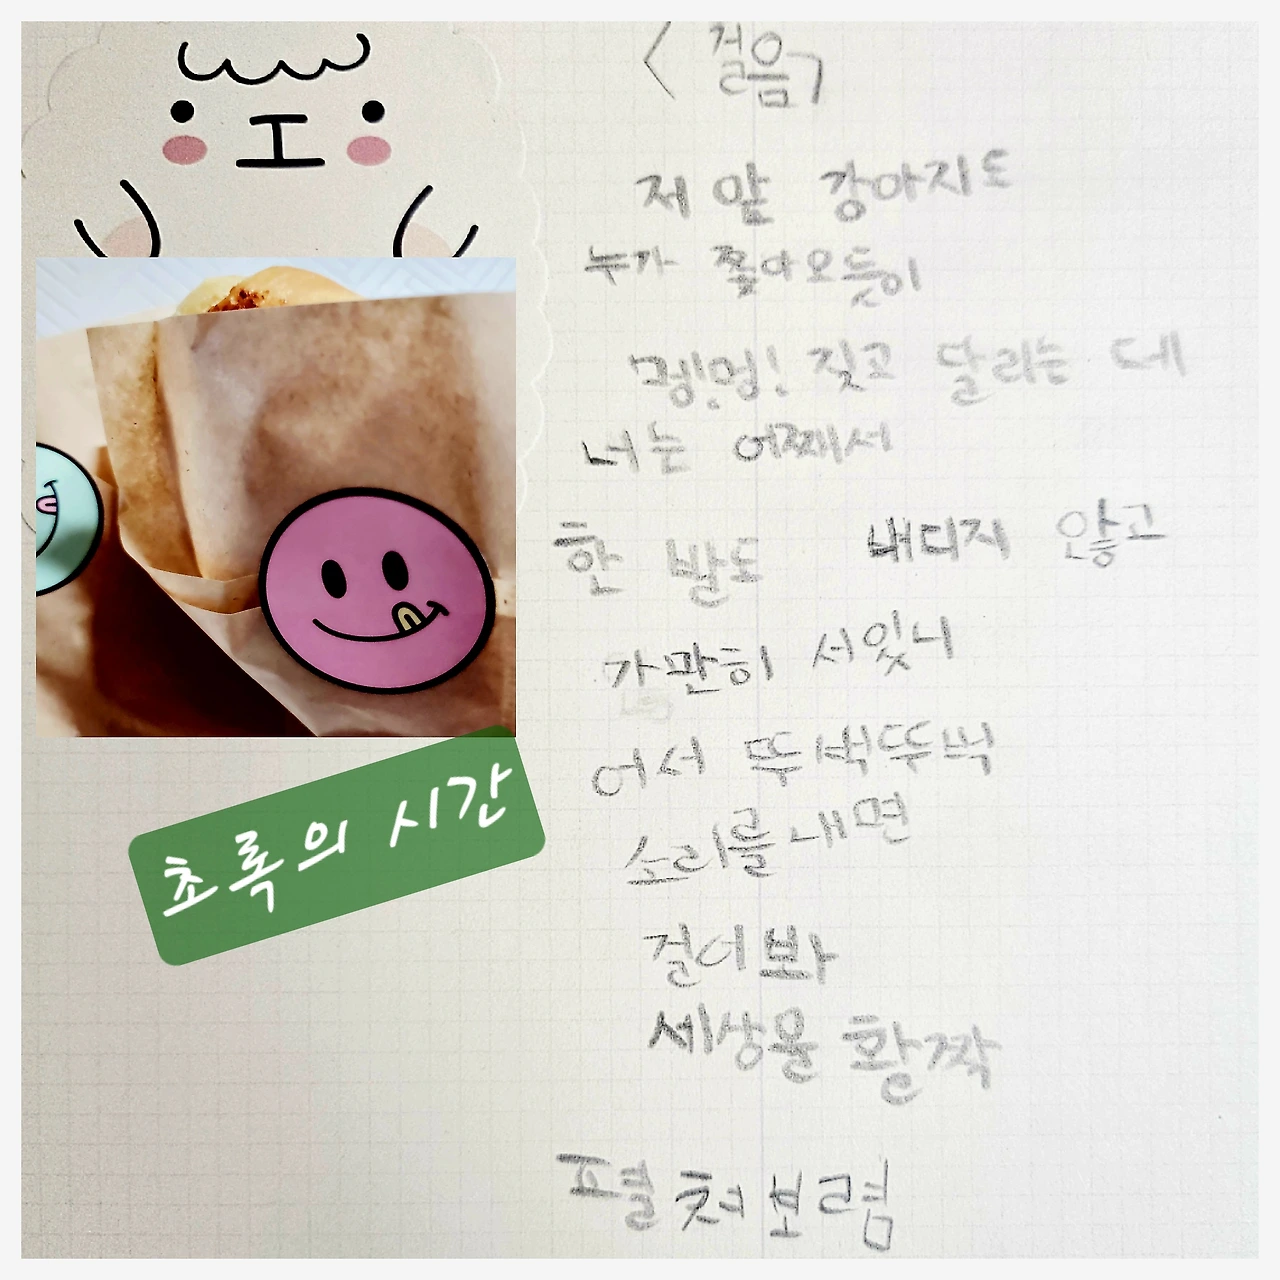 <걸음>
저 앞 강아지도
누가 쫓아오듯이
멍!멍! 짖고 달리는 데
너는 어째서
한 발도 내디지 않고
가만히 서있니
어서 뚜벅뚜벅
소리를 내면
걸어봐
세상을 활짝
펼쳐보렴
초록의 시간